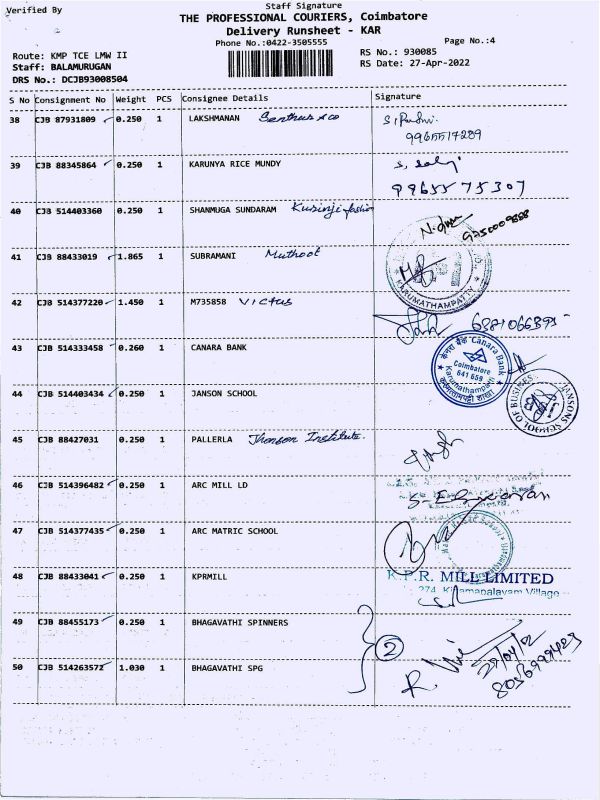 Verified By
Staff Signature
THE PROFESSIONAL COURIERS, Coimbatore
Delivery Runsheet - KAR
Phone No.:0422-3505555
Page No.:4
Route: KMP TCE LMW II
RS No.: 930085
Staff: BALAMURUGAN
RS Date: 27-Apr-2022
DRS No.: DCJB93008504
S No Consignment No Weight PCS Consignee Details Signature
38 CJB 87931809 0.250 1 LAKSHMANAN
9965517289
39 CJB 88345864 0.250 1 KARUNYA RICE MUNDY
9965575307
40 CJB 514403360 0.250 1 SHANMUGA SUNDARAM Kurinji fashion
41 CJB 88433019 1.865 1 SUBRAMANI Muthoot
KARUMATHAMPATTY
42 CJB 514377220 1.450 1 M735858 Victus
43 CJB 514333458 0.260 1 CANARA BANK
केनरा बैंक Canara Bank
Coimbatore
641 659
Karumathampatti
44 CJB 514403434 0.250 1 JANSON SCHOOL
JANSONS SCHOOL OF BUSINESS
45 CJB 88427031 0.250 1 PALLERLA Jhonson Institute.
46 CJB 514396482 0.250 1 ARC MILL LD
47 CJB 514377435 0.250 1 ARC MATRIC SCHOOL
48 CJB 88433041 0.250 1 KPRMILL
K.P.R. MILL LIMITED
274, Village
49 CJB 88455173 0.250 1 BHAGAVATHI SPINNERS
2
50 CJB 514263572 1.030 1 BHAGAVATHI SPG